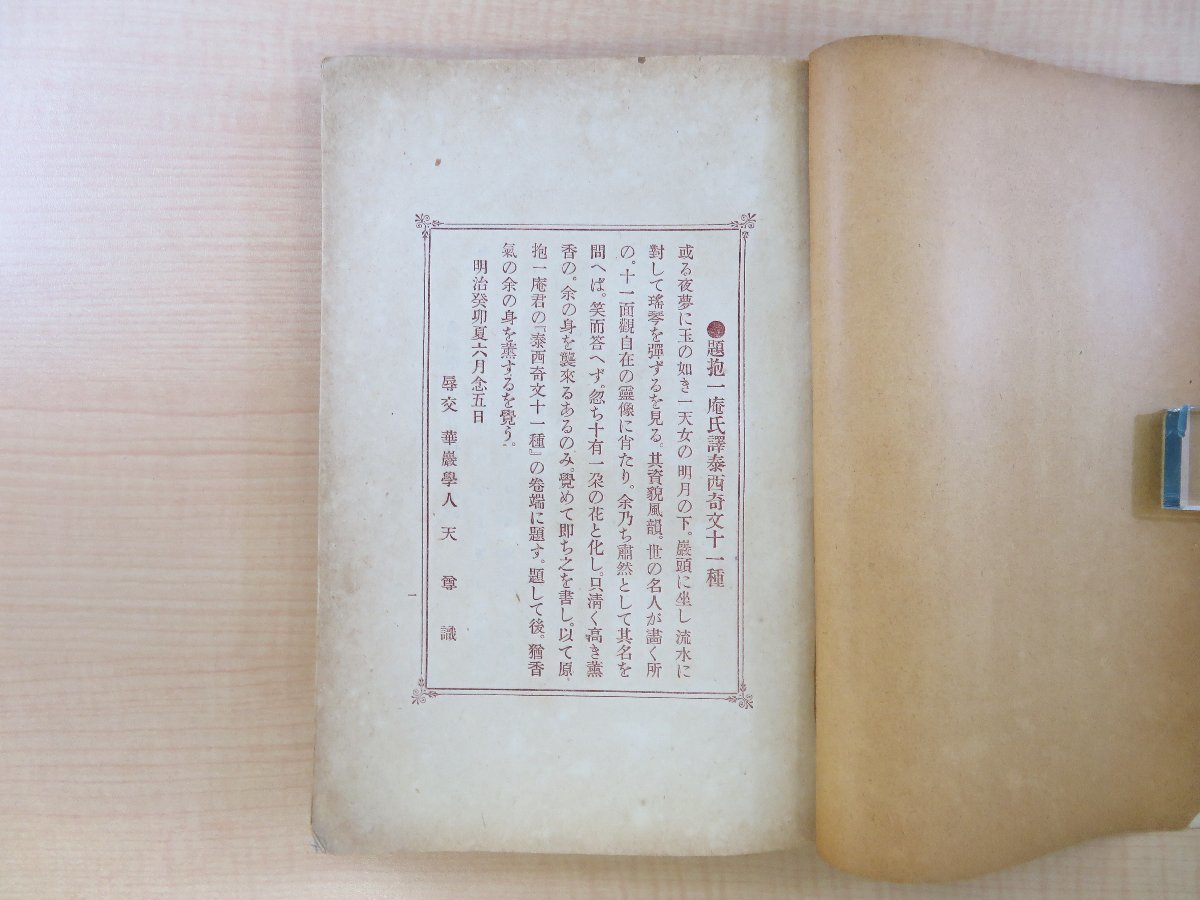 ●題抱一庵氏譯泰西奇文十一種
或る夜夢に玉の如き一天女の明月の下。巖頭に坐し流水に
對して瑤琴を彈ずるを見る。其資貌風韻。世の名人が畵く所
の。十一面觀自在の靈像に肖たり。余乃ち肅然として其名を
問へば。笑而答へず。忽ち十有一朶の花と化し。只淸く高き薰
香の。余の身を襲來るあるのみ。覺めて即ち之を書し。以て原
抱一庵君の『泰西奇文十一種』の卷端に題す。題して後。猶香
氣の余の身を薰するを覺う。
明治癸卯夏六月念五日
辱交 華嚴學人 天尊識
一